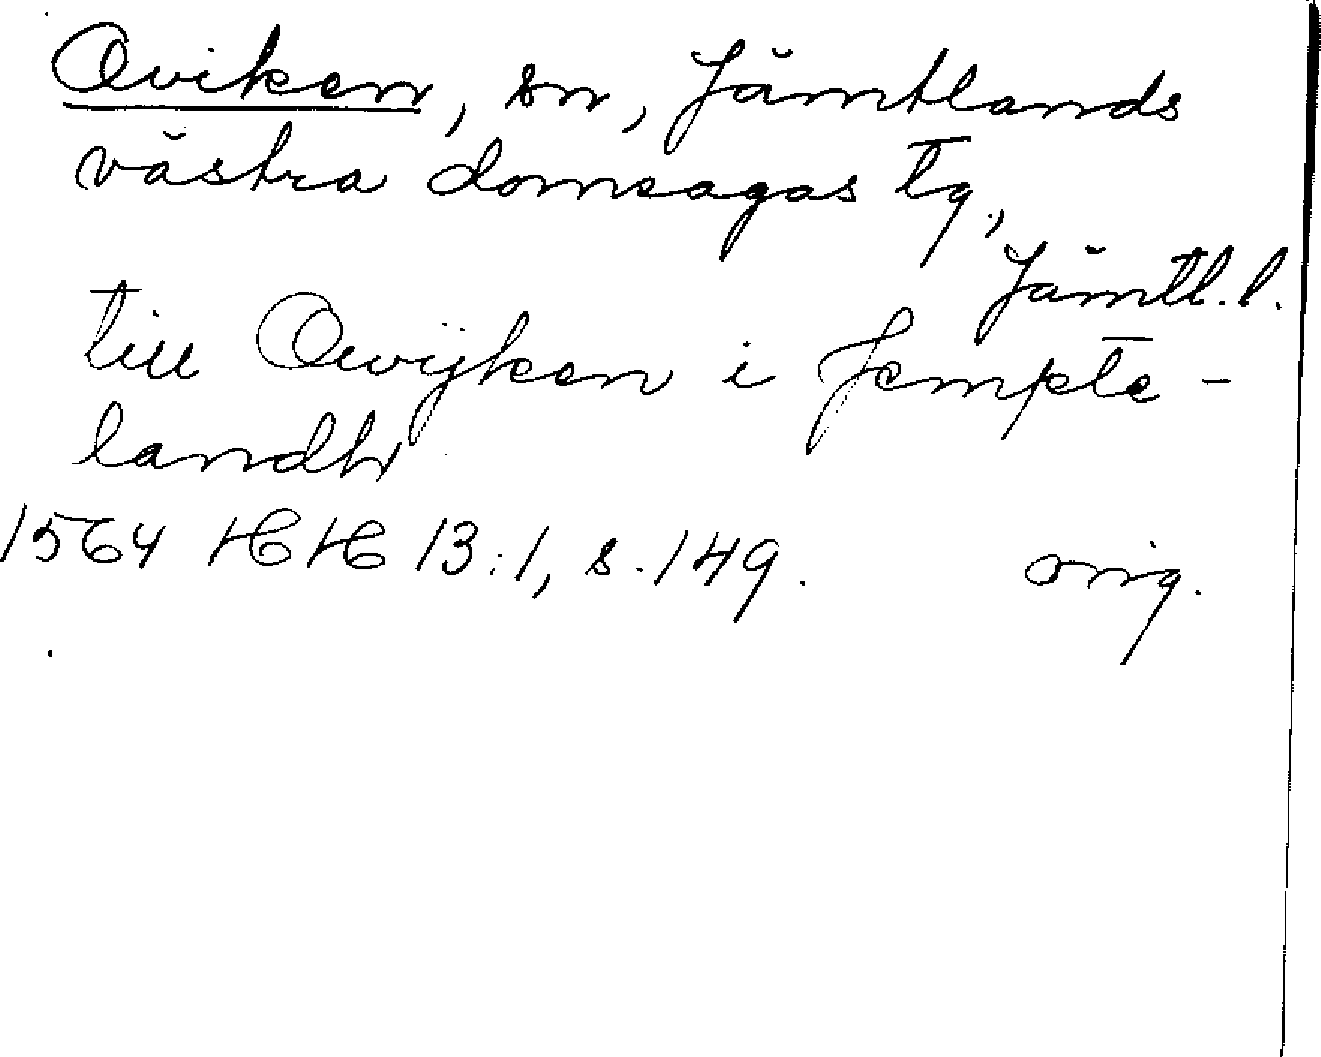 Oviken, sn, Jämtlands
västra domsagas tg.,
Jämtl. l.
till Owijken i Jempte-
landh
1564 HH 13:1, s. 149. orig.